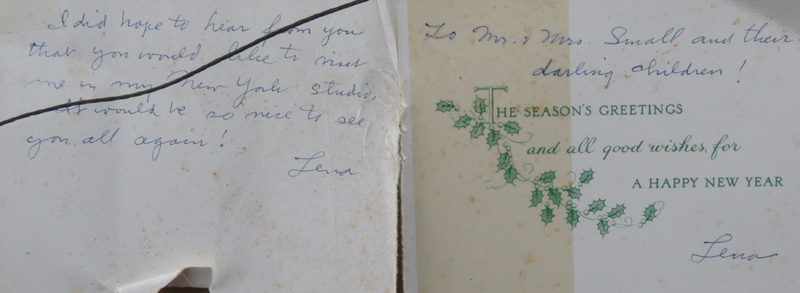 I did hope to hear from you
that you would like to visit
me in my New York studio,
It would be so nice to see
you all again!
Lena
To Mr. & Mrs. Small and their
darling children!
THE SEASON'S GREETINGS
and all good wishes for
A HAPPY NEW YEAR
Lena